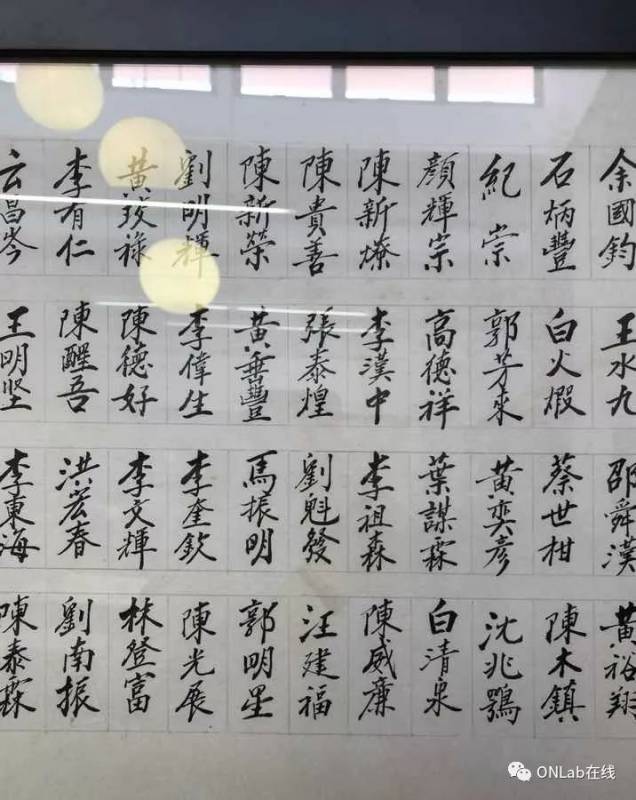 余國鈞
石炳豐
紀崇
顏輝宗
陳新燎
陳貴善
陳新榮
劉明輝
黃祿
李有仁
云昌岑
王水九
白火煅
郭芳來
高德祥
李漢中
張泰煌
黃垂豐
李偉生
陳德好
陳醒吾
王明坚
邵舜漢
蔡世柑
黃奕彥
葉謀霖
李祖森
劉魁發
馬振明
李奎欽
李文輝
洪宏春
李東海
黃裕翔
陳木鎮
沈兆鶚
白清泉
陳威廉
汪建福
郭明星
陳光展
林登富
劉南振
陳泰霖
ONLab在线